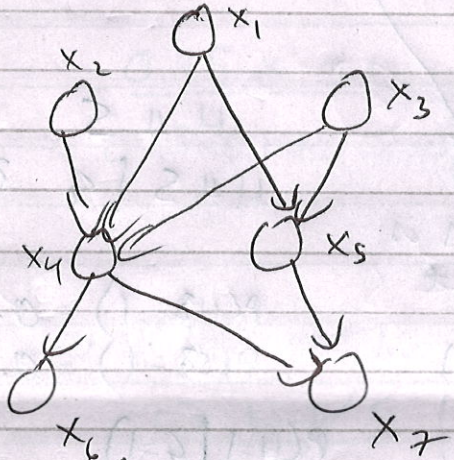 x1
x2
x3
x4
x5
x6
x7